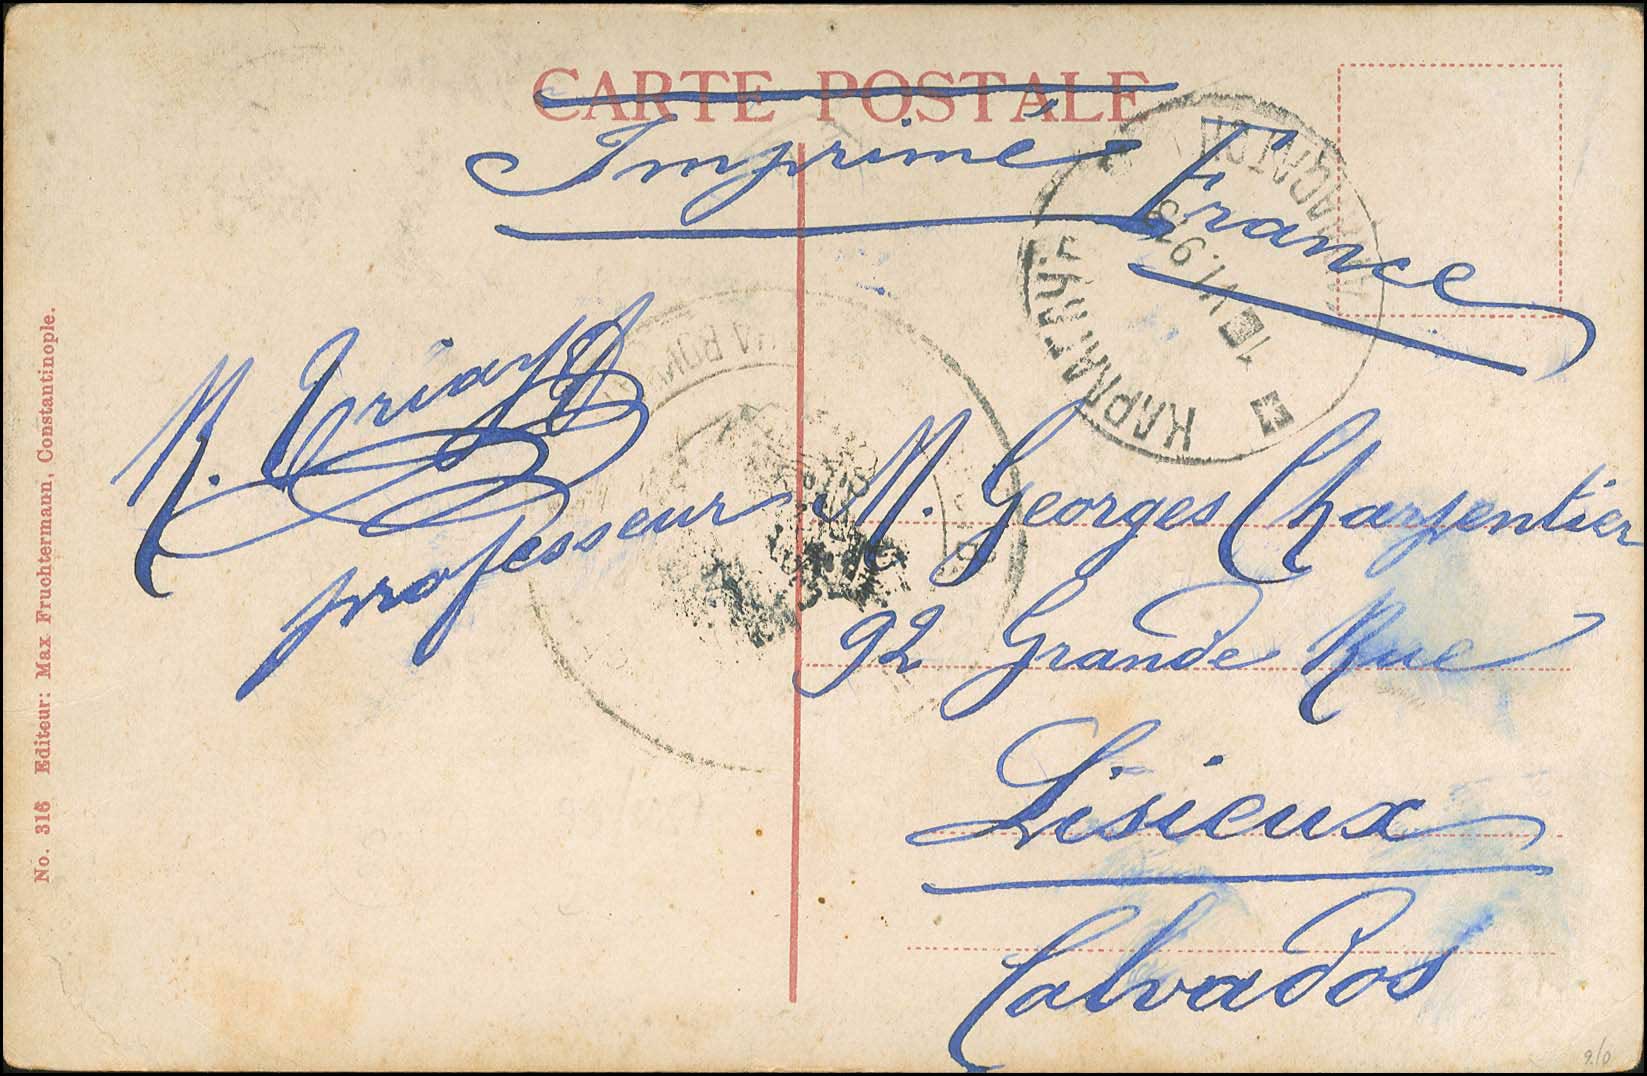 CARTE POSTALE
Imprimé France
M.
professeur
M. Georges Charpentier
92 Grande Rue
Lisieux
Calvados
No. 316 Editeur: Max Fruchtermann, Constantinople.
9/0